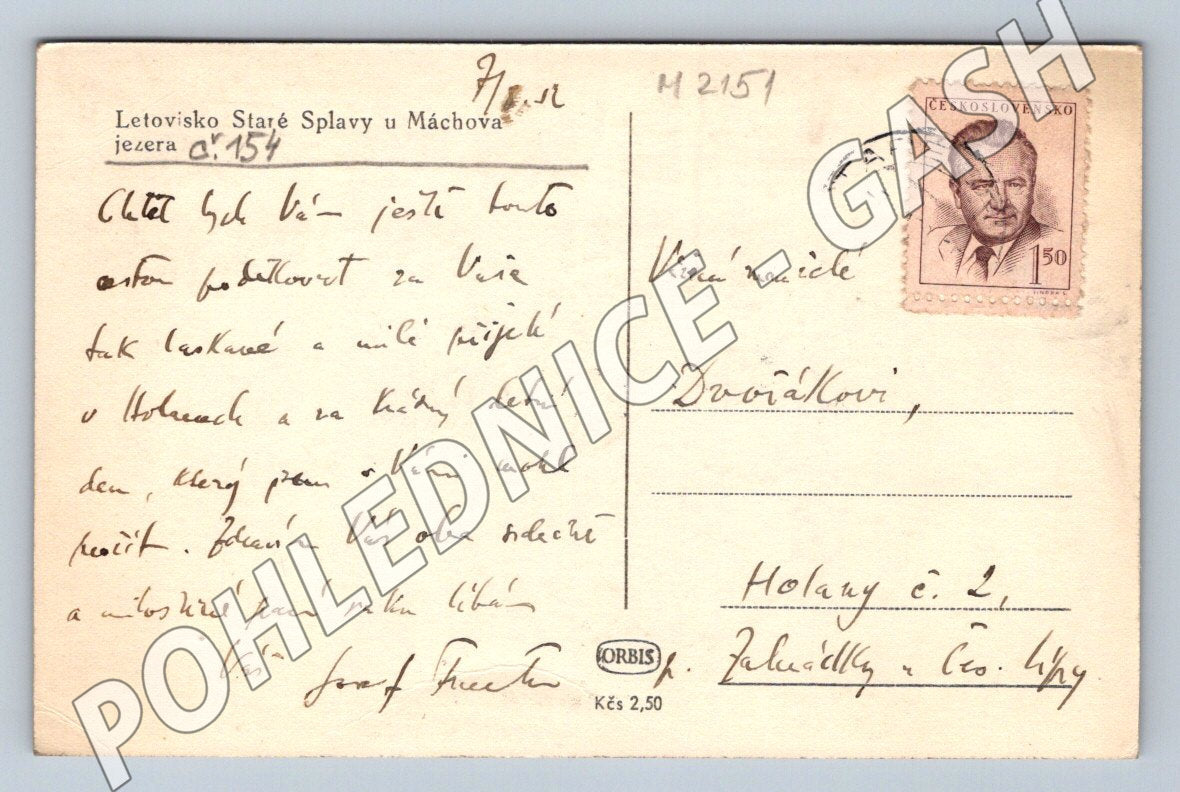 M 2151
Letovisko Staré Splavy u Máchova
jezera č. 154
ČESKOSLOVENSKO
1 50
Chtěl bych Vám ještě touto
cestou poděkovat za Vaše
tak laskavé a milé přijetí
v Holanech a za krásný
den, který jsem s Vámi mohl
prožít. Zdravím Vás oba srdečně
a milostivé paní ruku líbám
Váš Josef
Dvořákovi,
Holany č. 2,
p. Zahrádky u Čes. Lípy
ORBIS
Kčs 2,50
POHLEDNICE - GASH